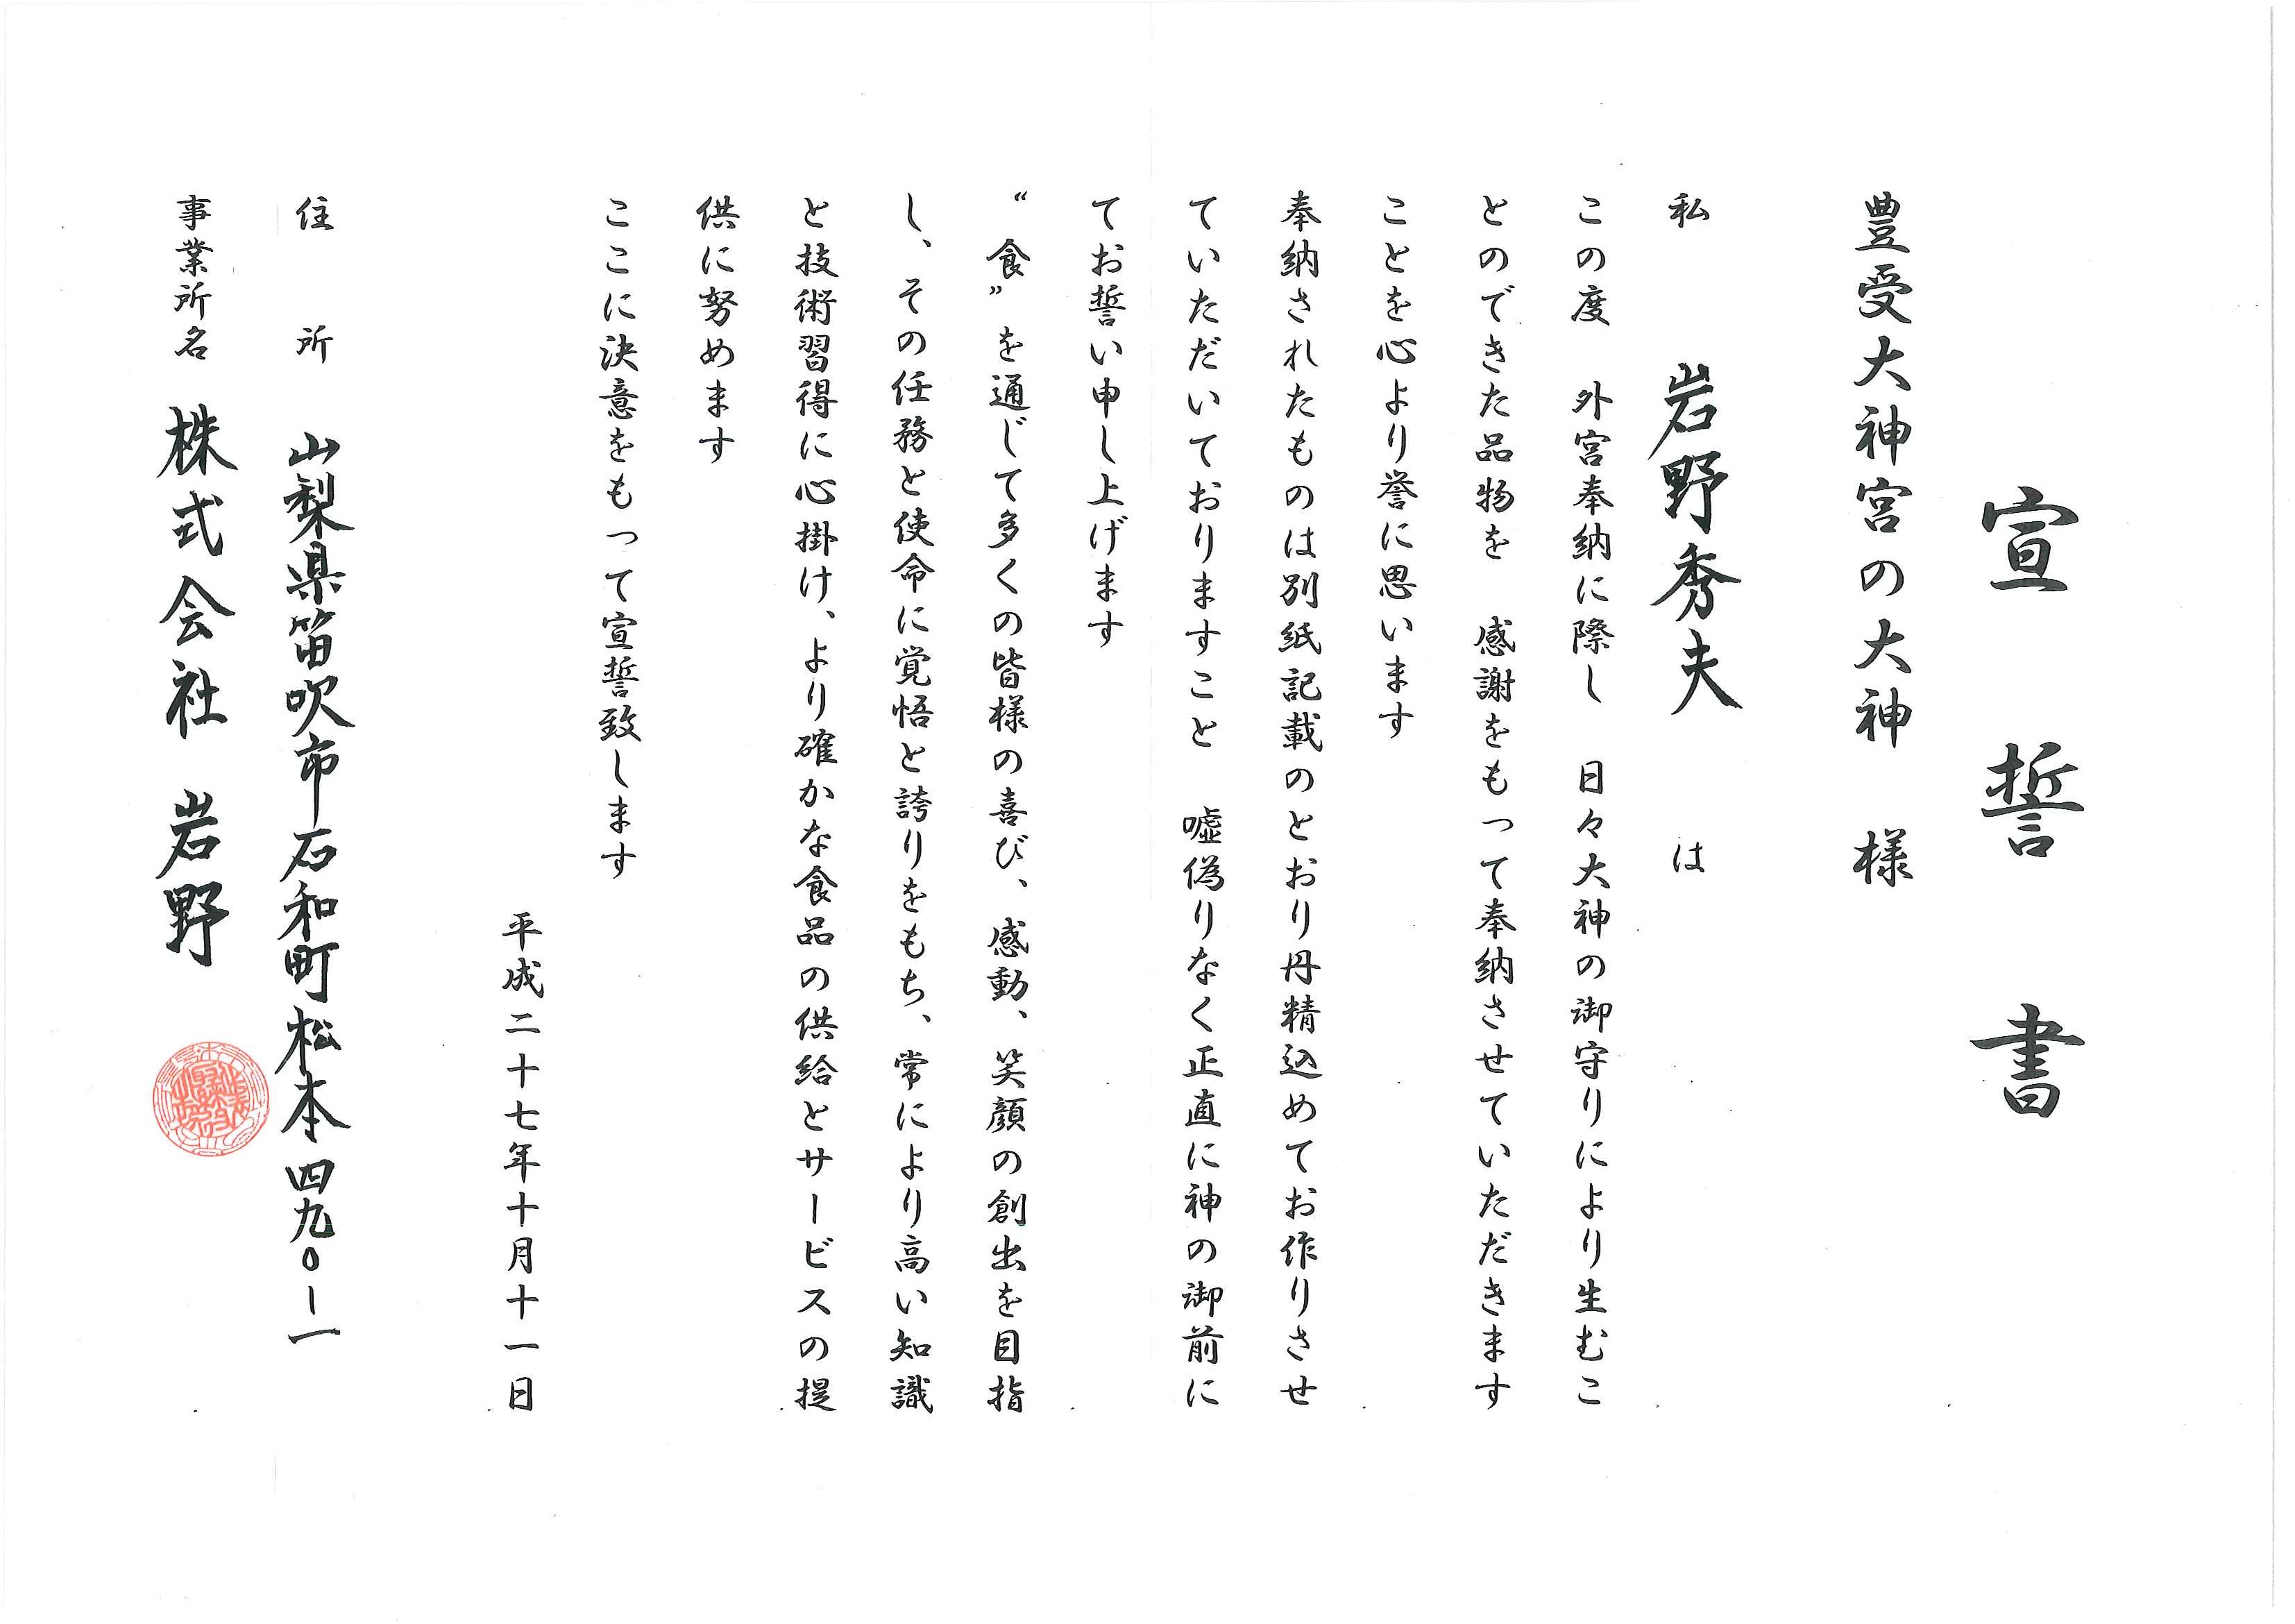 宣誓書
豊受大神宮の大神 様
私 岩野秀夫 は
この度 外宮奉納に際し 日々大神の御守りにより生むこ
とのできた品物を 感謝をもって奉納させていただきます
ことを心より誉に思います
奉納されたものは別紙記載のとおり丹精込めてお作りさせ
ていただいておりますこと 嘘偽りなく正直に神の御前に
てお誓い申し上げます
“食”を通じて多くの皆様の喜び、感動、笑顔の創出を目指
し、その任務と使命に覚悟と誇りをもち、常により高い知識
と技術習得に心掛け、より確かな食品の供給とサービスの提
供に努めます
ここに決意をもって宣誓致します
平成二十七年十月十一日
住所 山梨県笛吹市石和町松本四九〇ー一
事業所名 株式会社 岩野